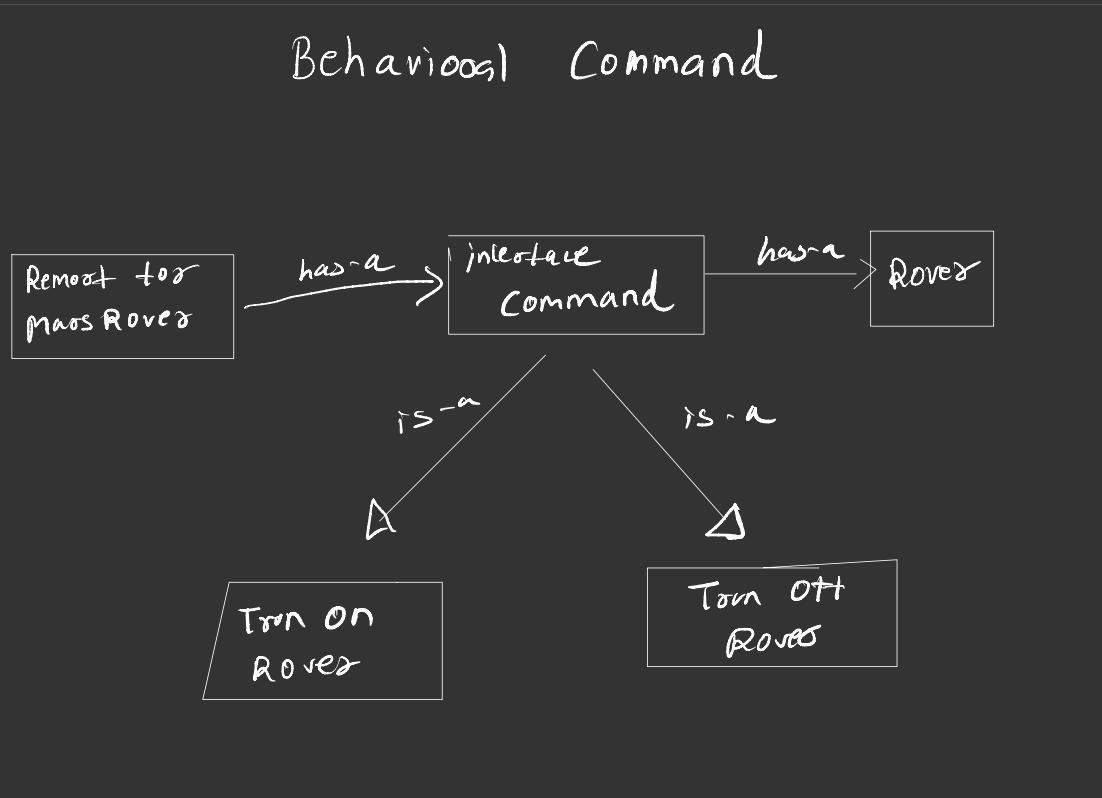 Behavioural Command
Remoot for
Mars Rover
has-a
interface
Command
has-a
Rover
is-a
is-a
Turn On
Rover
Turn Off
Rover